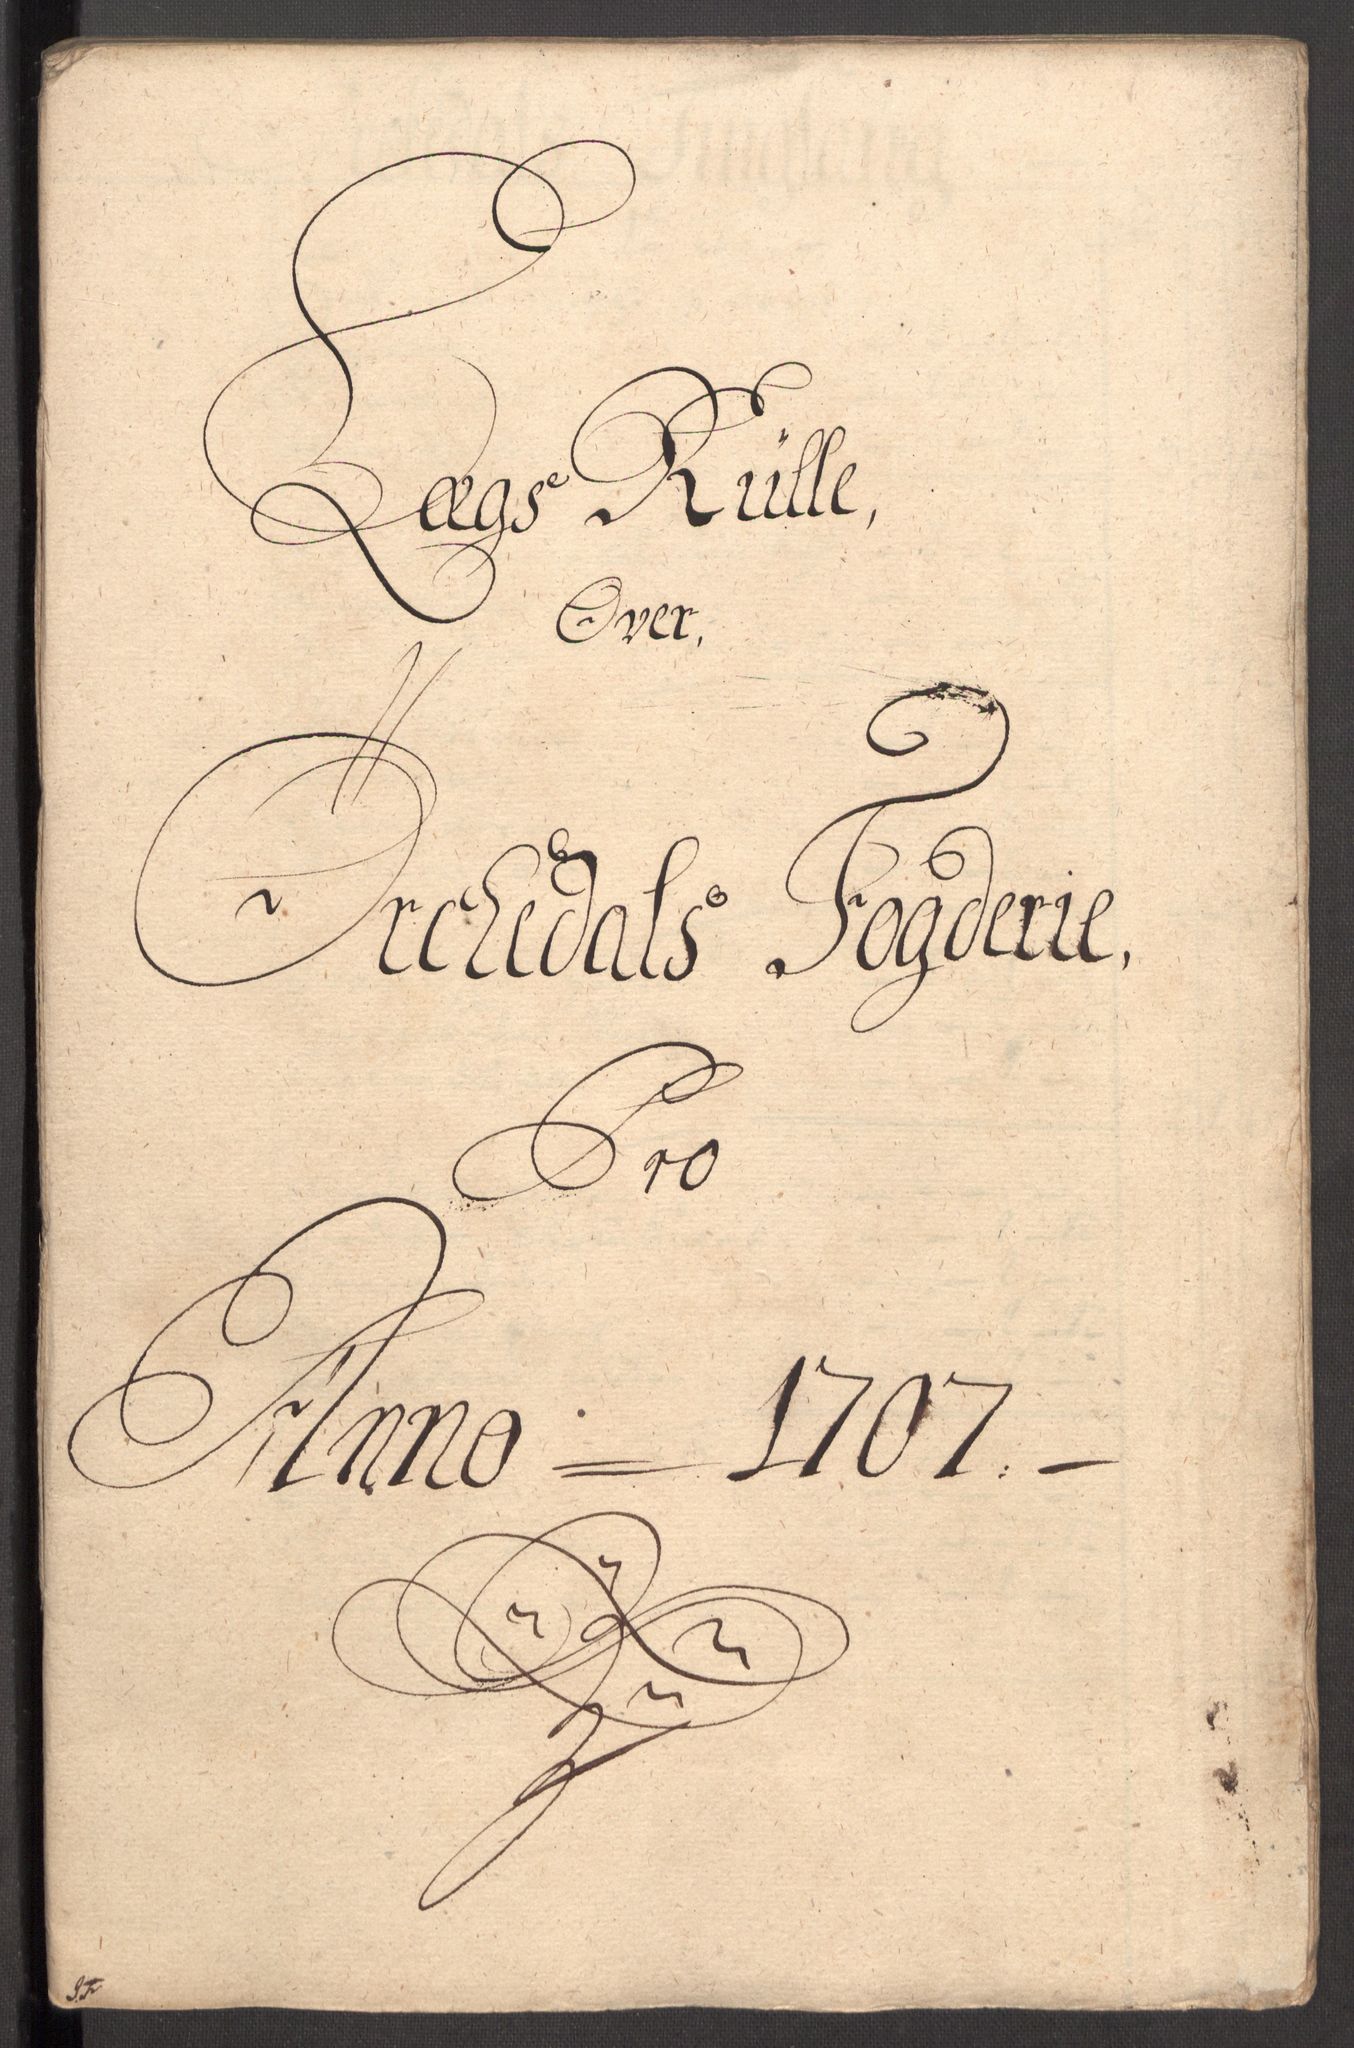 Lægs Rülle,
Over,
Orchedals Fogderie,
Pro
Anno = 1707. -